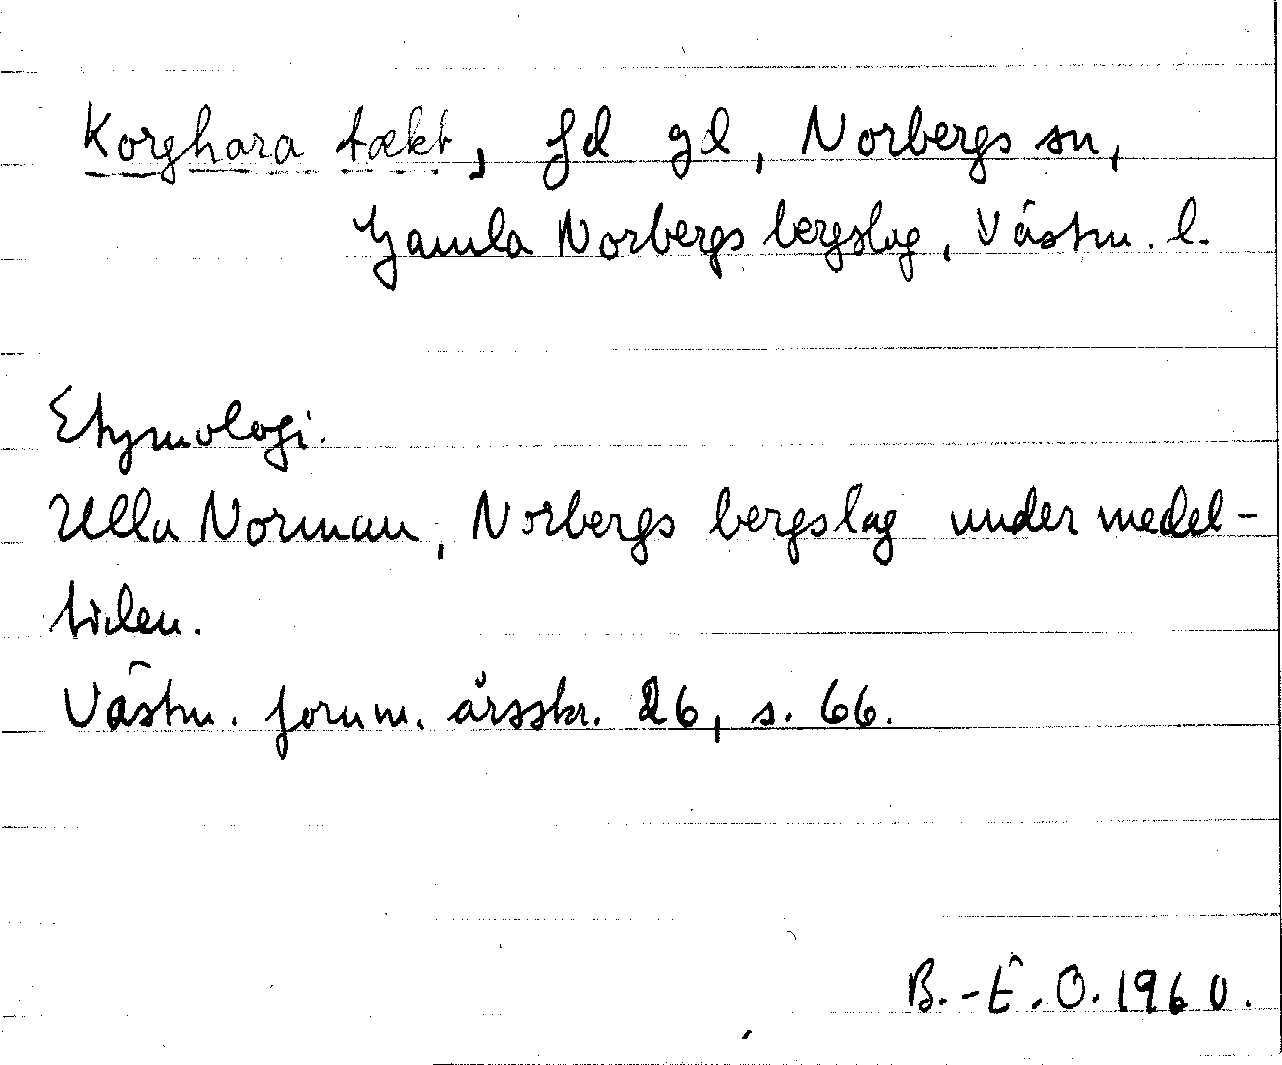 Korghara tækt, fd gd, Norbergs sn,
Gamla Norbergs bergslag, Västm. l.
Etymologi.
Ulla Norman, Norbergs bergslag under medel-
tiden.
Västm. fornm. årsskr. 26, s. 66.
B.-E. O. 1960.